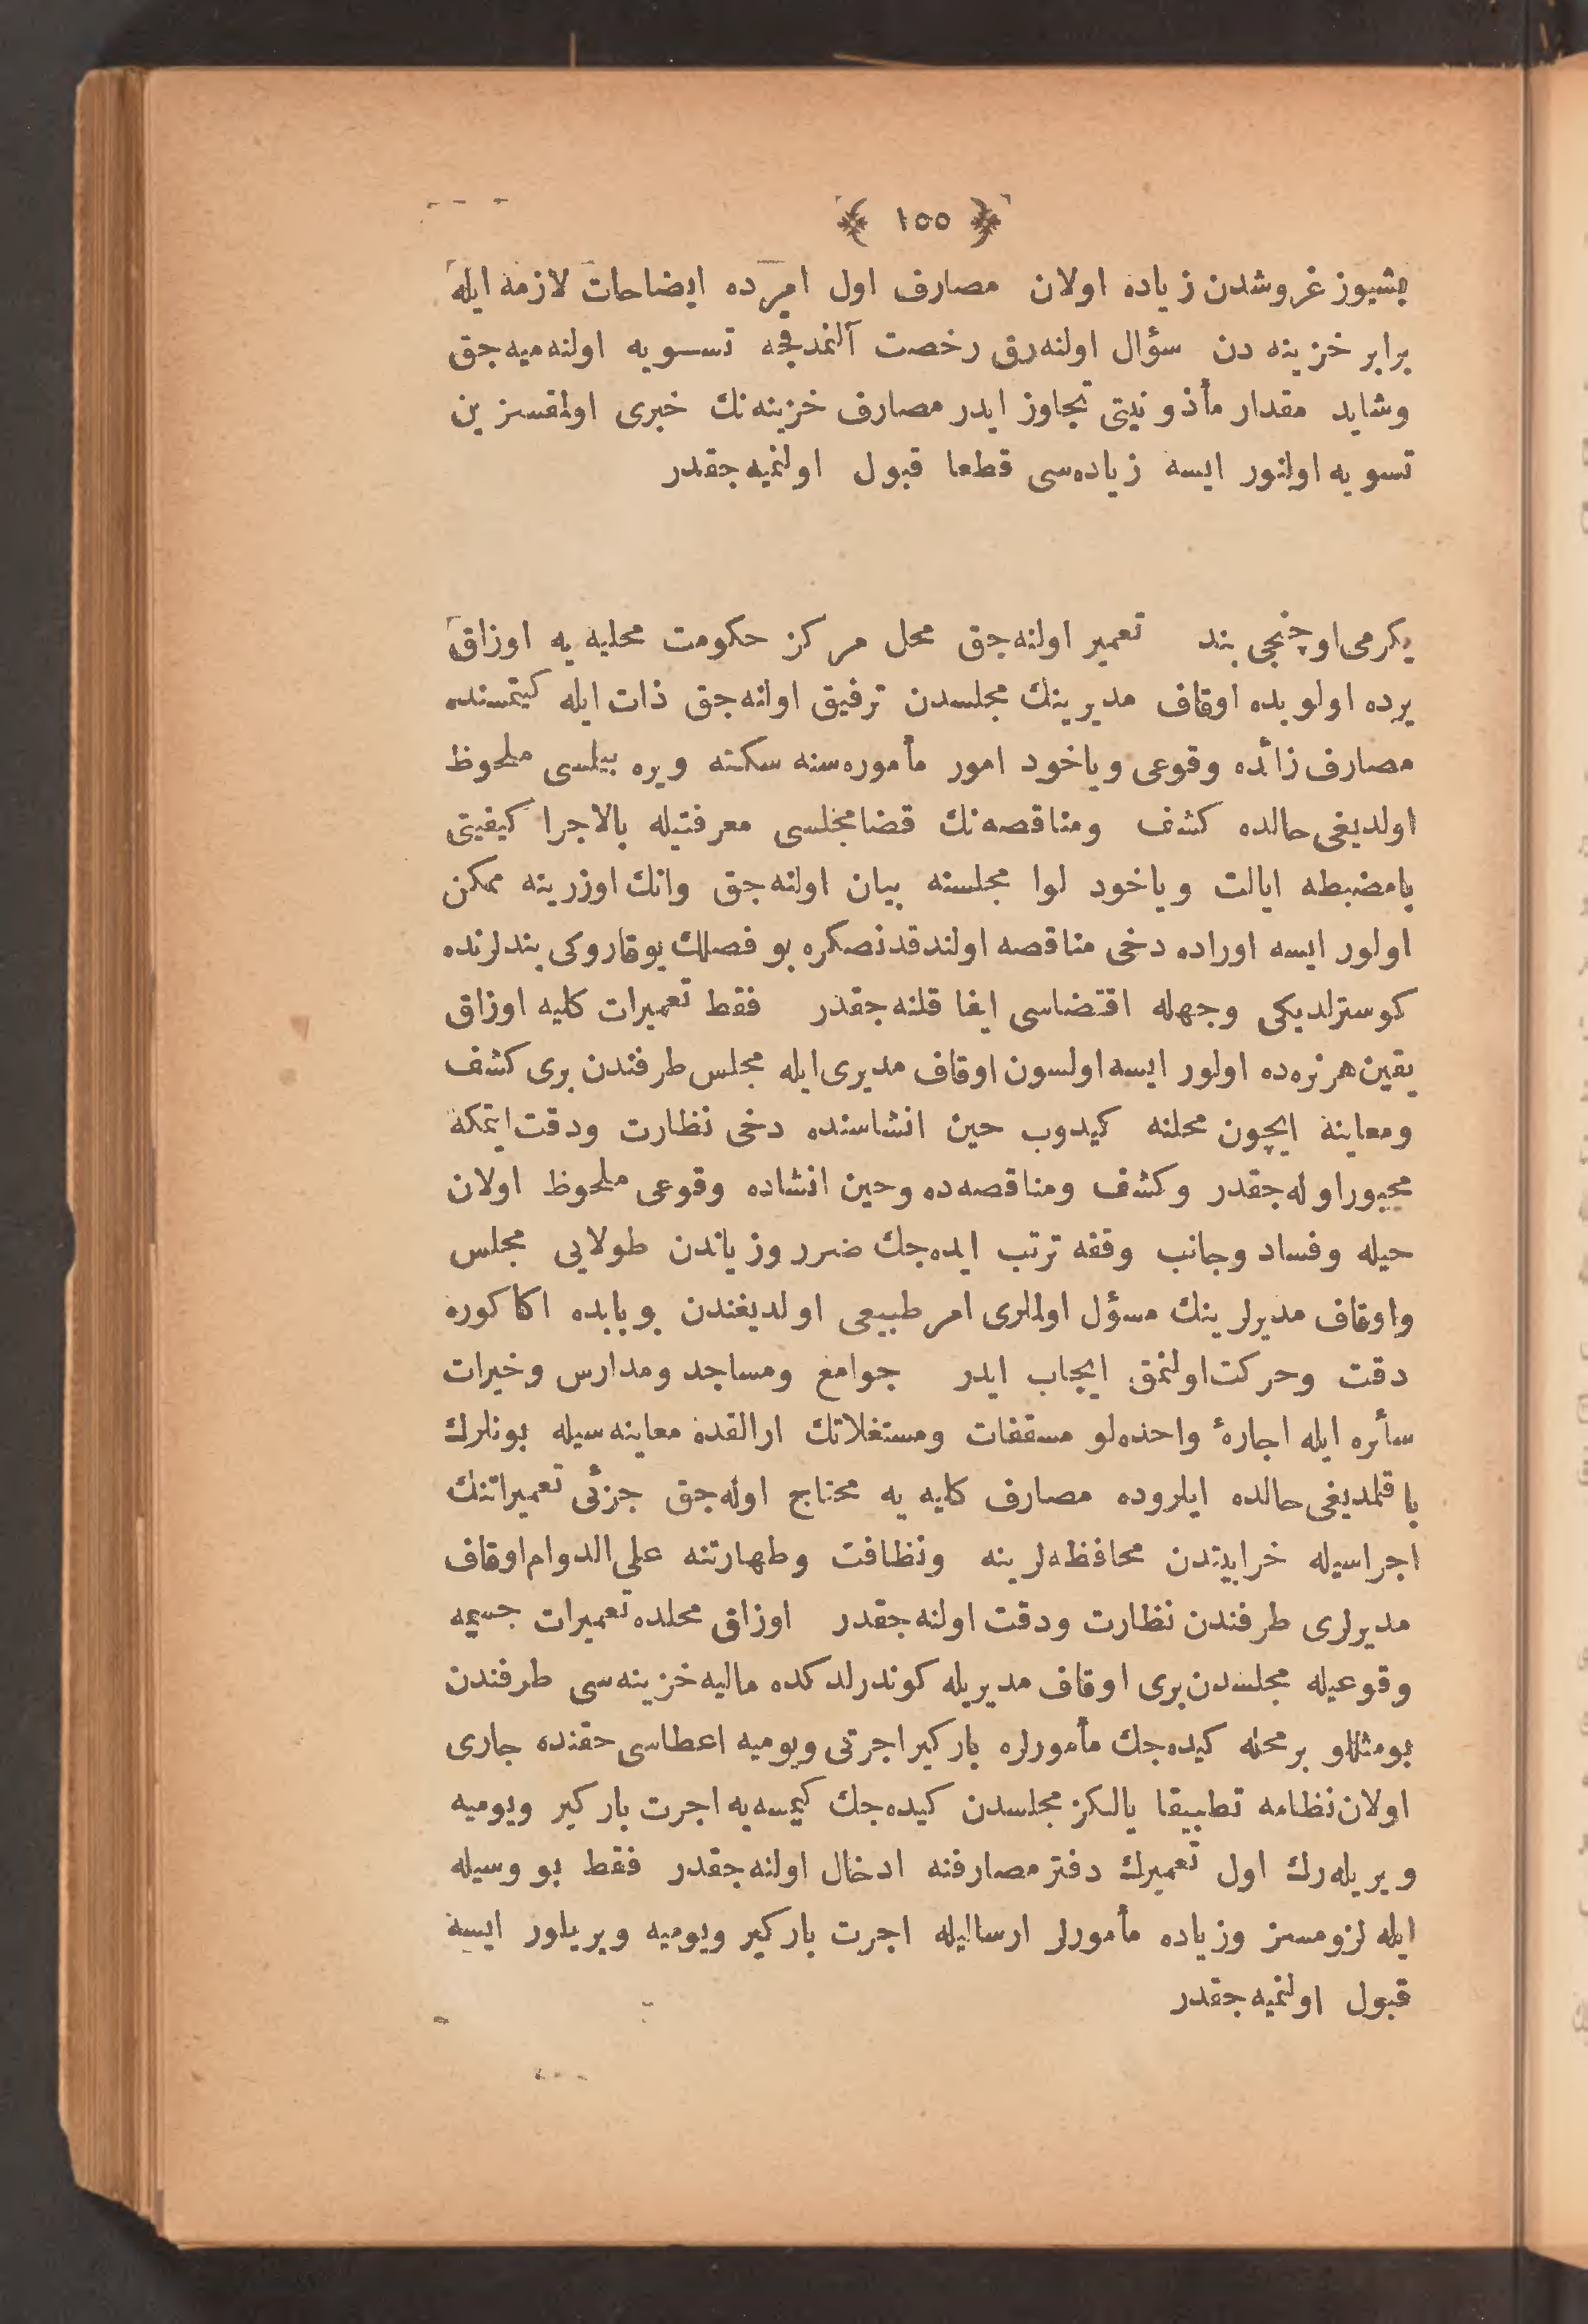 ﴿ ١٥٥ ﴾
بشیوز غروشدن زیاده اولان مصارف اول امرده ایضاحات لازمه ایله
برابر خزینه دن سؤال اولنه‌رق رخصت آلنمدقجه تسویه اولنه‌میه‌جق
وشاید مقدار مأذونیتی تجاوز ایدر مصارف خزینه‌نك خبری اولمقسزین
تسویه اولنور ایسه زیاده‌سی قطعا قبول اولنمیه‌جقدر
یکرمی‌اوچنجی بند تعمیر اولنه‌جق محل مرکز حکومت محلیه‌یه اوزاق
یرده اولوبده اوقاف مدیرینك مجلسدن ترفیق اولنه‌جق ذات ایله کیتمسنده
مصارف زائده وقوعی ویاخود امور مأموره‌سنه سکته ویره بیلسی ملحوظ
اولدیغی‌حالده کشف ومناقصه‌نك قضامجلسی معرفتیله بالاجرا کیفیتی
بامضبطه ایالت ویاخود لوا مجلسنه بیان اولنه‌جق وانك اوزرینه ممکن
اولور ایسه اوراده دخی مناقصه اولندقدنصکره بو فصلك یوقاروکی بندلرنده
کوسترلدیکی وجهله اقتضاسی ایفا قلنه‌جقدر فقط تعمیرات کلیه اوزاق
یقین‌هرنره‌ده اولور ایسه‌اولسون اوقاف مدیری‌ایله مجلس طرفندن بری کشف
ومعاینه ایچون محلنه کیدوب حین انشاسنده دخی نظارت ودقت‌ایتمکه
مجبوراوله‌جقدر وکشف ومناقصه‌ده وحین انشاده وقوعی ملحوظ اولان
حیله وفساد وجانب وقفه ترتب ایده‌جك ضرر وزیاندن طولایی مجلس
واوقاف مدیرلرینك مسؤل اولملری امر طبیعی اولدیغندن بوبابده اکا کوره
دقت وحرکت‌اولنمق ایجاب ایدر جوامع ومساجد ومدارس وخیرات
سأره ایله اجارهٔ واحده‌لو مسقفات ومستغلاتك ارالقده معاینه‌سیله بونلرك
باقلمدیغی‌حالده ایلروده مصارف کلیه‌یه محتاج اوله‌جق جزئی تعمیراتنك
اجراسیله خرابیتدن محافظه‌لرینه ونظافت وطهارتنه علی‌الدوام‌اوقاف
مدیرلری طرفندن نظارت ودقت اولنه‌جقدر اوزاق محلده تعمیرات جسیمه
وقوعیله مجلسدن‌بری اوقاف مدیریله کوندرلدکده مالیه‌خزینه‌سی طرفندن
بومثللو بر محله کیده‌جك مأمورلره بارکیراجرتی ویومیه اعطاسی حقنده جاری
اولان‌نظامه تطبیقا یالکز مجلسدن کیده‌جك کیمسه‌یه اجرت بارکیر ویومیه
ویریله‌رك اول تعمیرك دفتر مصارفنه ادخال اولنه‌جقدر فقط بو وسیله
ایله لزومسز وزیاده مأمورلر ارسالیله اجرت بارکیر ویومیه ویریلور ایسه
قبول اولنمیه‌جقدر